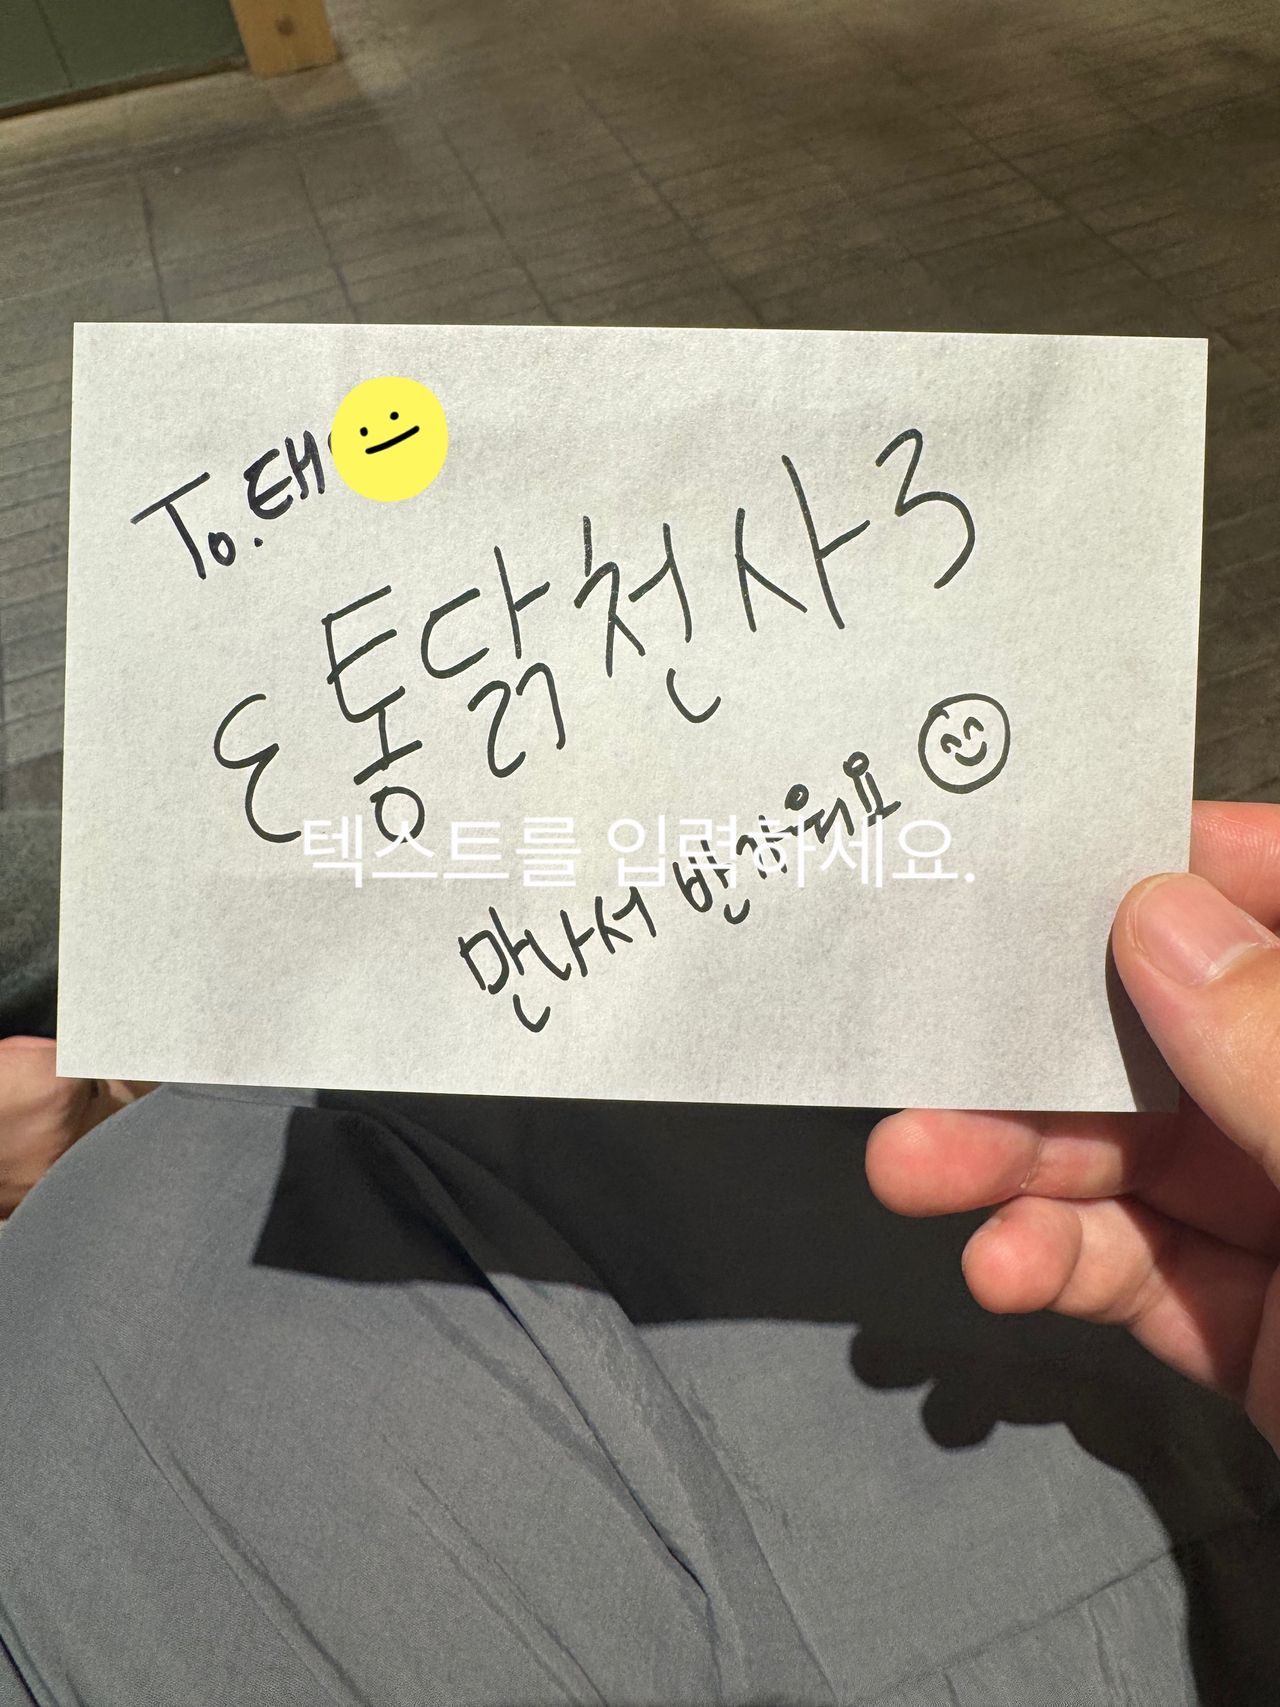 To. 태
ε통닭천사3
텍스트를 입력하세요.
만나서 반가워요